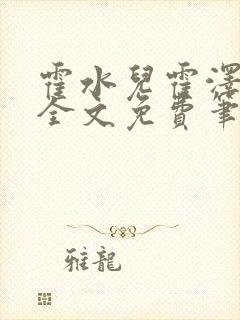 霍水兒霍澤
全文免費筆
雅龍